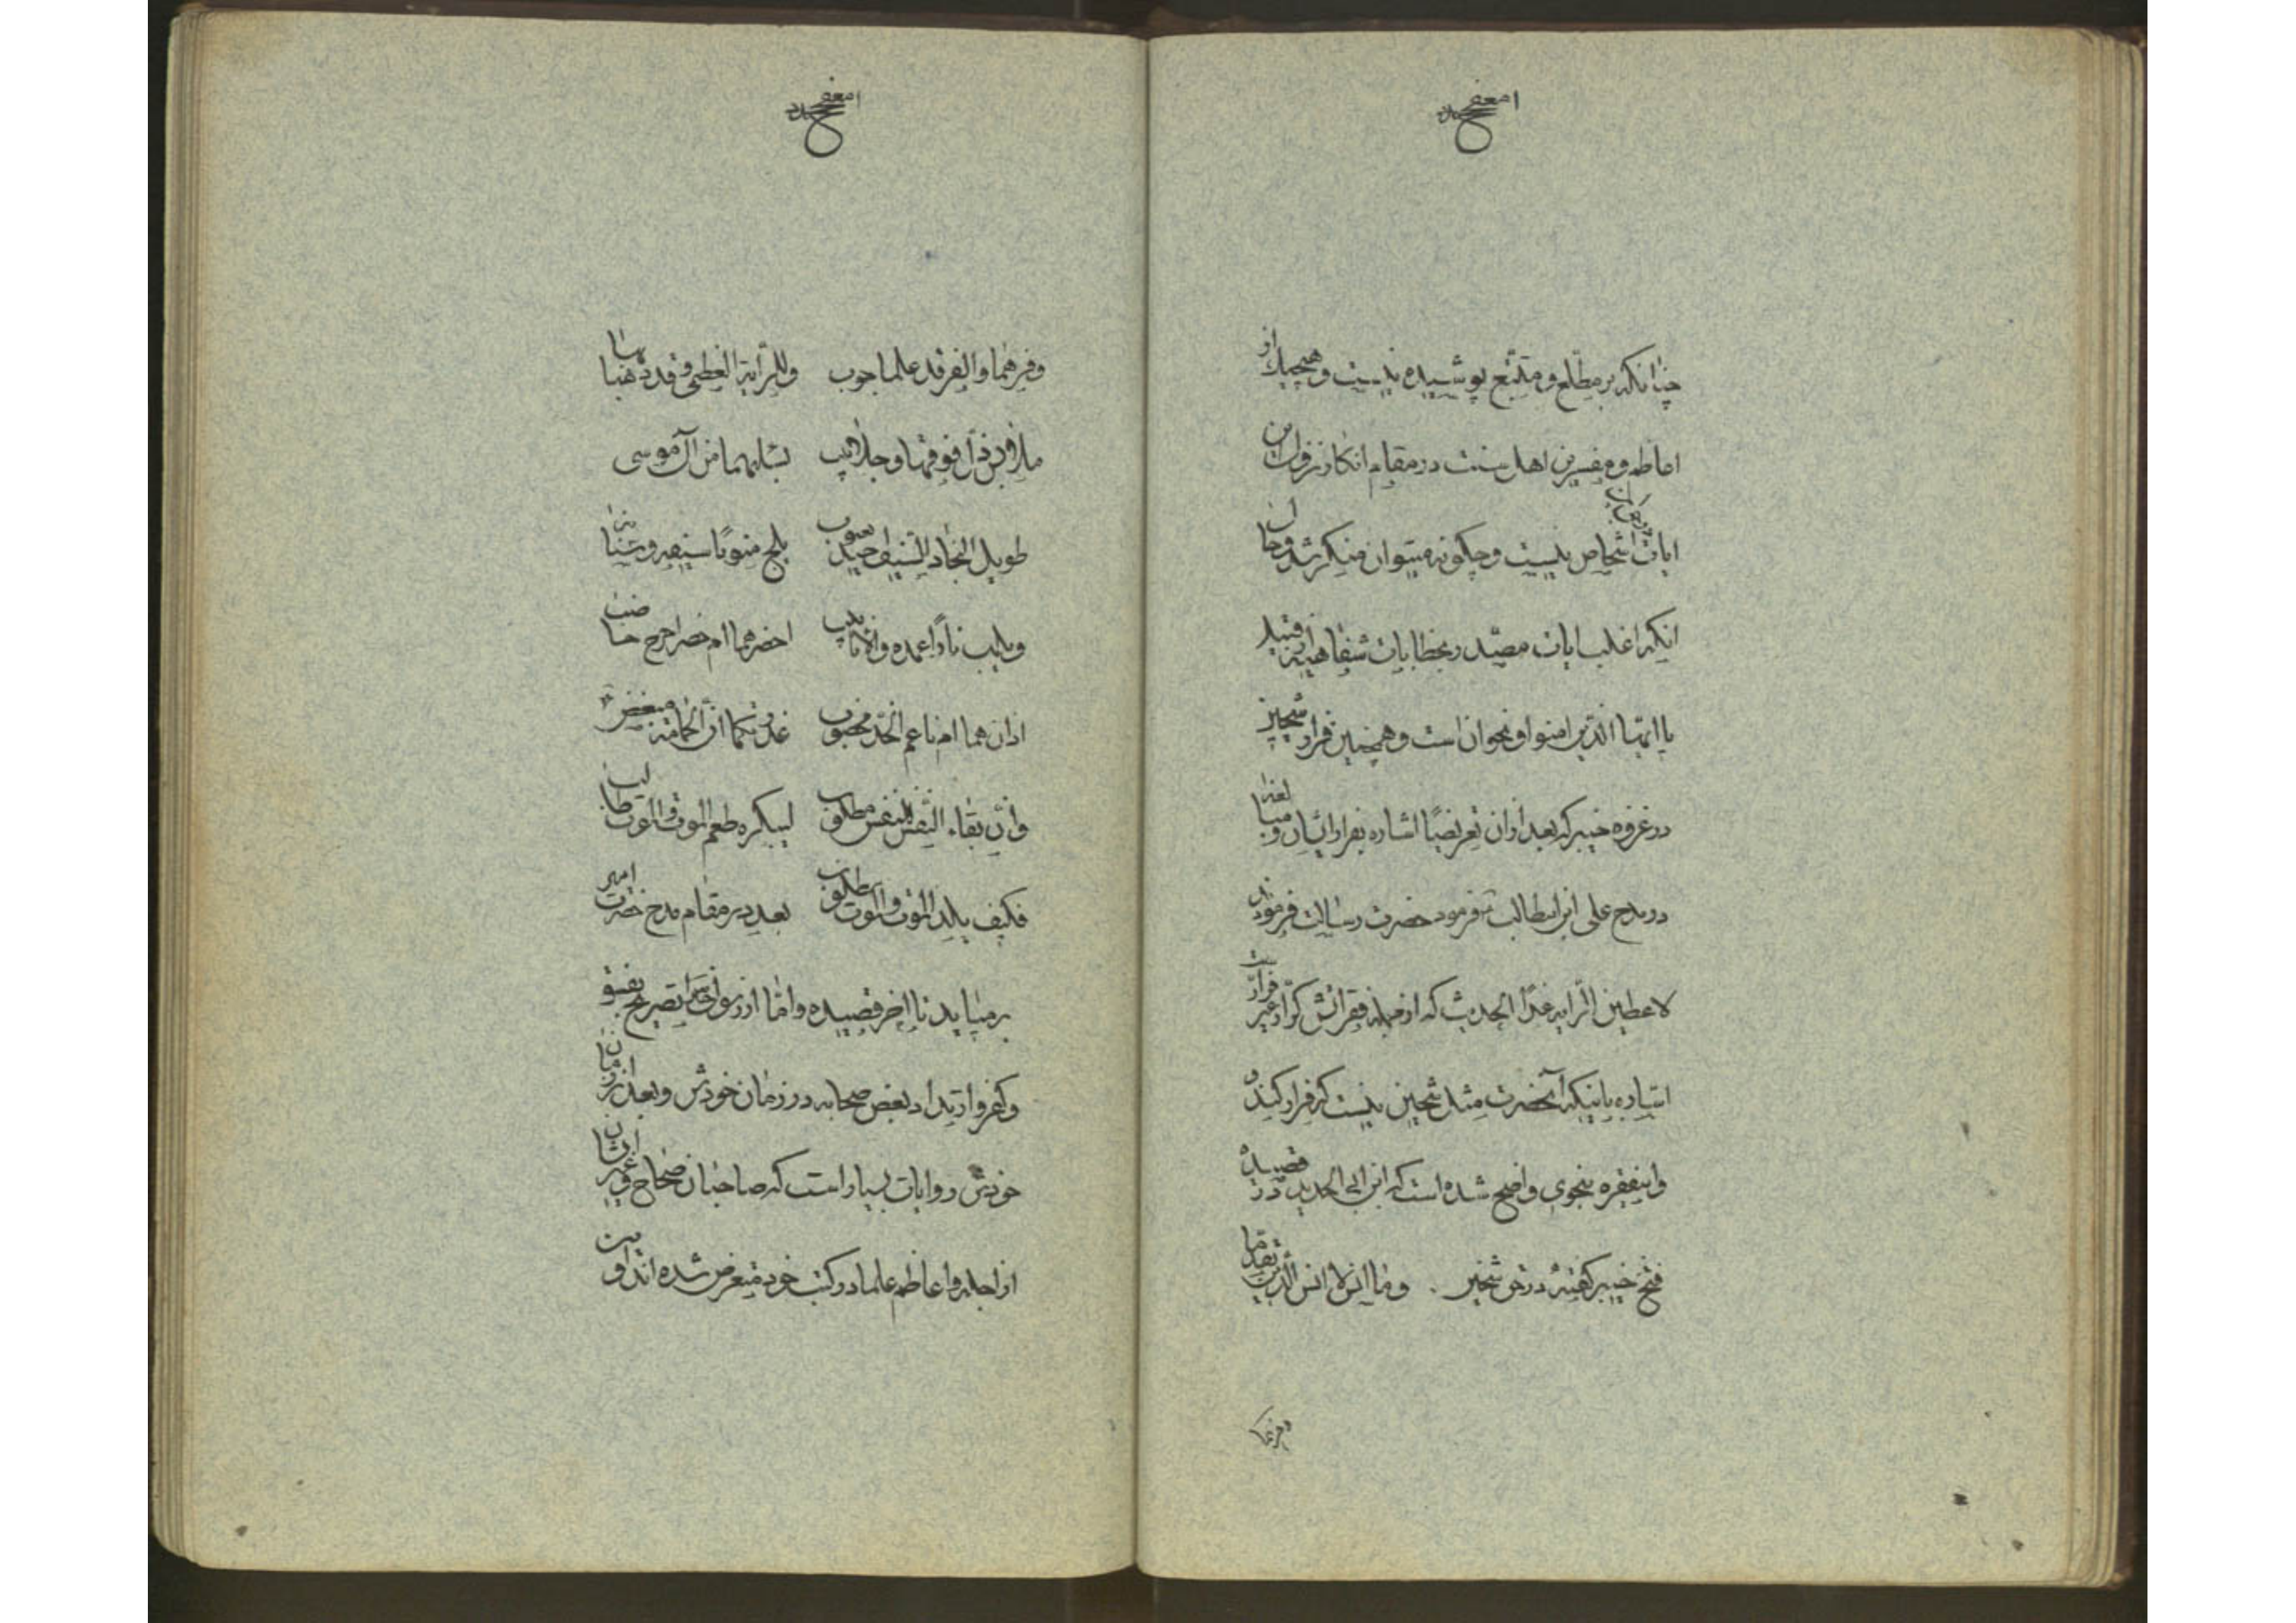 چنانکه بر مطلع و متتبع پوشیده نیست و هیچیک از
اعاظم و مفسرین اهل سنت در مقام انکار نزول این
ایات در حق آن اشخاص نیست و چگونه میتوان منکر شد و حال آن
انکه اغلب ایات مصدر بخطابات شفاهیه از قبیل
یا ایها الذین امنوا و نحو ان است و همچنین فرار شیخین
در غزوه خیبر که بعد از ان تعریضا اشاره بفرار ایشان و مبالغة
در مدح علی ابن ابیطالب فرمود حضرت رسالت فرمودند
لاعطین الرایه غدا الحدیث که از جمله فقراتش کرار غیر فرار است
اشاره باینکه آنحضرت مثل شیخین نیست که فرار کند و
و اینفقره بنحوی واضح شده است که ابن ابی الحدید در قصیدهٔ
فتح خیبر گفته در حق شیخین . وما انس لا انس الذین تقدما
وفرهما
وفرهما والفر قد علما حوب وللرایة العظمی وقد ذهبا بها
ملابس ذل فوقها وجلابیب یشلهما من آل موسی
طویل النجاد للسیف اجید یعبوب یمج منونا سیفه وسنانه
ویلهب نارا غمده والانابیب احضرهما ام حضر اخرج خاضب
وذان هما ام ناعم الخد مخضوب عذرتکما ان الحمام لمبغض
وان بقاء النفس للنفس مطلوب لیکره طعم الموت والموت طالب
فکیف یلذ الموت والموت مطلوب بعد در مقام مدح حضرت امیر
برمیاید تا اخر قصیده و اما از رسولخدا تصریح بفسق
و کفر و ارتداد بعض صحابه در زمان خودش و بعد از زمان
خودش روایات بسیار است که صاحبان صحاح و غیر ایشان
از اجله و اعاظم علما در کتب خود متعرض شده اند و